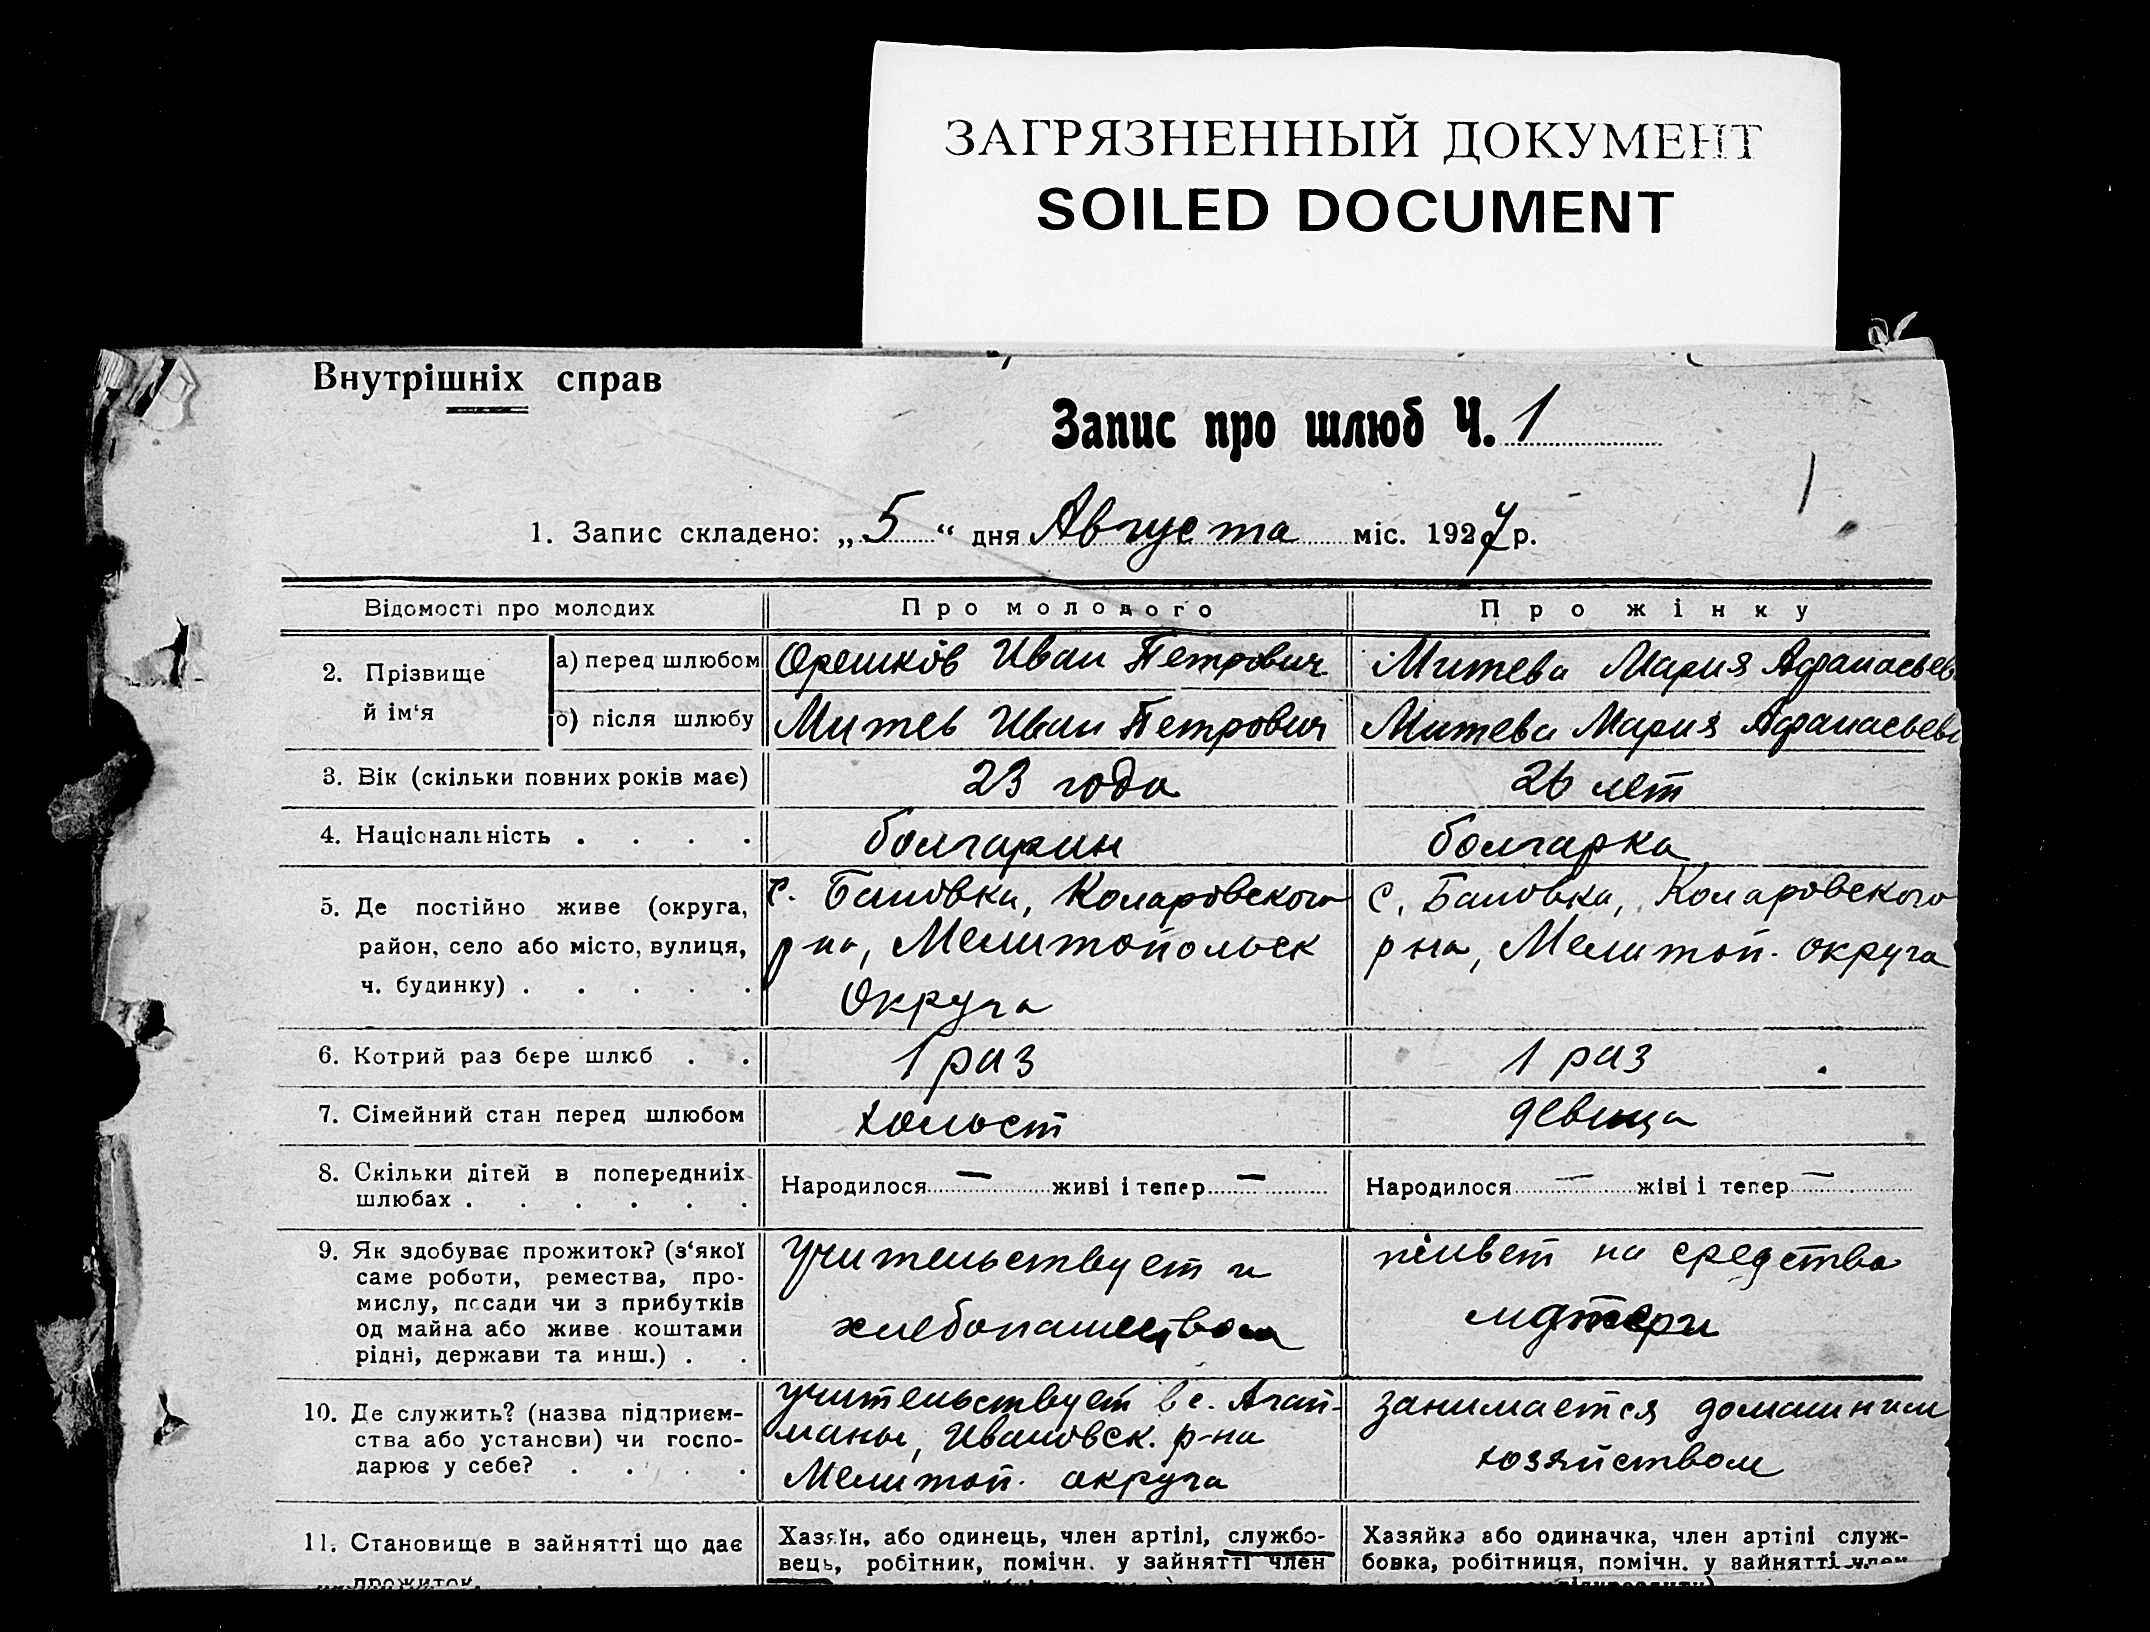 ЗАГРЯЗНЕННЫЙ ДОКУМЕНТ
SOILED DOCUMENT
Внутрішніх справ
Запис про шлюб Ч. 1
1. Запис складено: „5“ дня Августа міс. 1927 р.
Відомості про молодих
Про молодого
Про жінку
2. Прізвище
й ім‘я
а) перед шлюбом
Орешков Иван Петрович
Митева Мария Афанасьев
б) після шлюбу
Митев Иван Петрович
Митева Мария Афанасьев
3. Вік (скільки повних років має)
23 года
26 лет
4. Національність . . . .
болгарин
болгарка
5. Де постійно живе (округа,
район, село або місто, вулиця,
ч. будинку) . . . . .
с. Бановка, Коларовского
р-на, Мелитопольск
Округа
с. Бановка, Коларовского
р-на, Мелитоп. округа
6. Котрий раз бере шлюб . .
1 раз
1 раз
7. Сімейний стан перед шлюбом
холост
девица
8. Скільки дітей в попередниіх
шлюбах . . . . . .
Народилося — живі і тепер —
Народилося — жіві і тепер —
9. Як здобуває прожиток? (з‘якої
саме роботи, ремества, про-
мислу, посади чи з прибутків
од майна або живе коштами
рідні, держави та инш.) . .
Учительствует и
хлебопашеством
живет на средства
матери
10. Де служить? (назва підприєм-
ства або установи) чи госпо-
дарює у себе? . . . .
учительствует в с.
Ивановск. р-на
Мелитоп. округа
занимается домашним
хозяйством
11. Становище в зайнятті що дає
прожиток.
Хазяїн, або одинець, член артілі, службо-
вець, робітник, помічн. у зайнятті член
Хазяйка або одиначка, член артілі служ-
бовка, робітниця, помічн. у зайнятті член